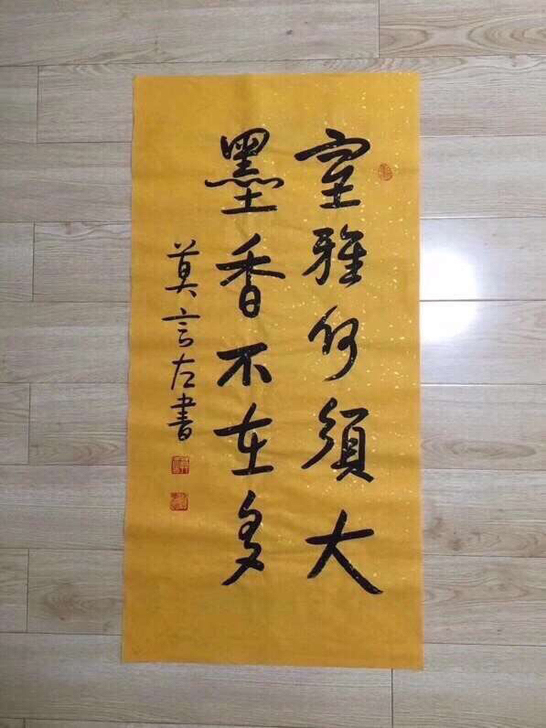 室雅何須大
墨香不在多
莫言左书